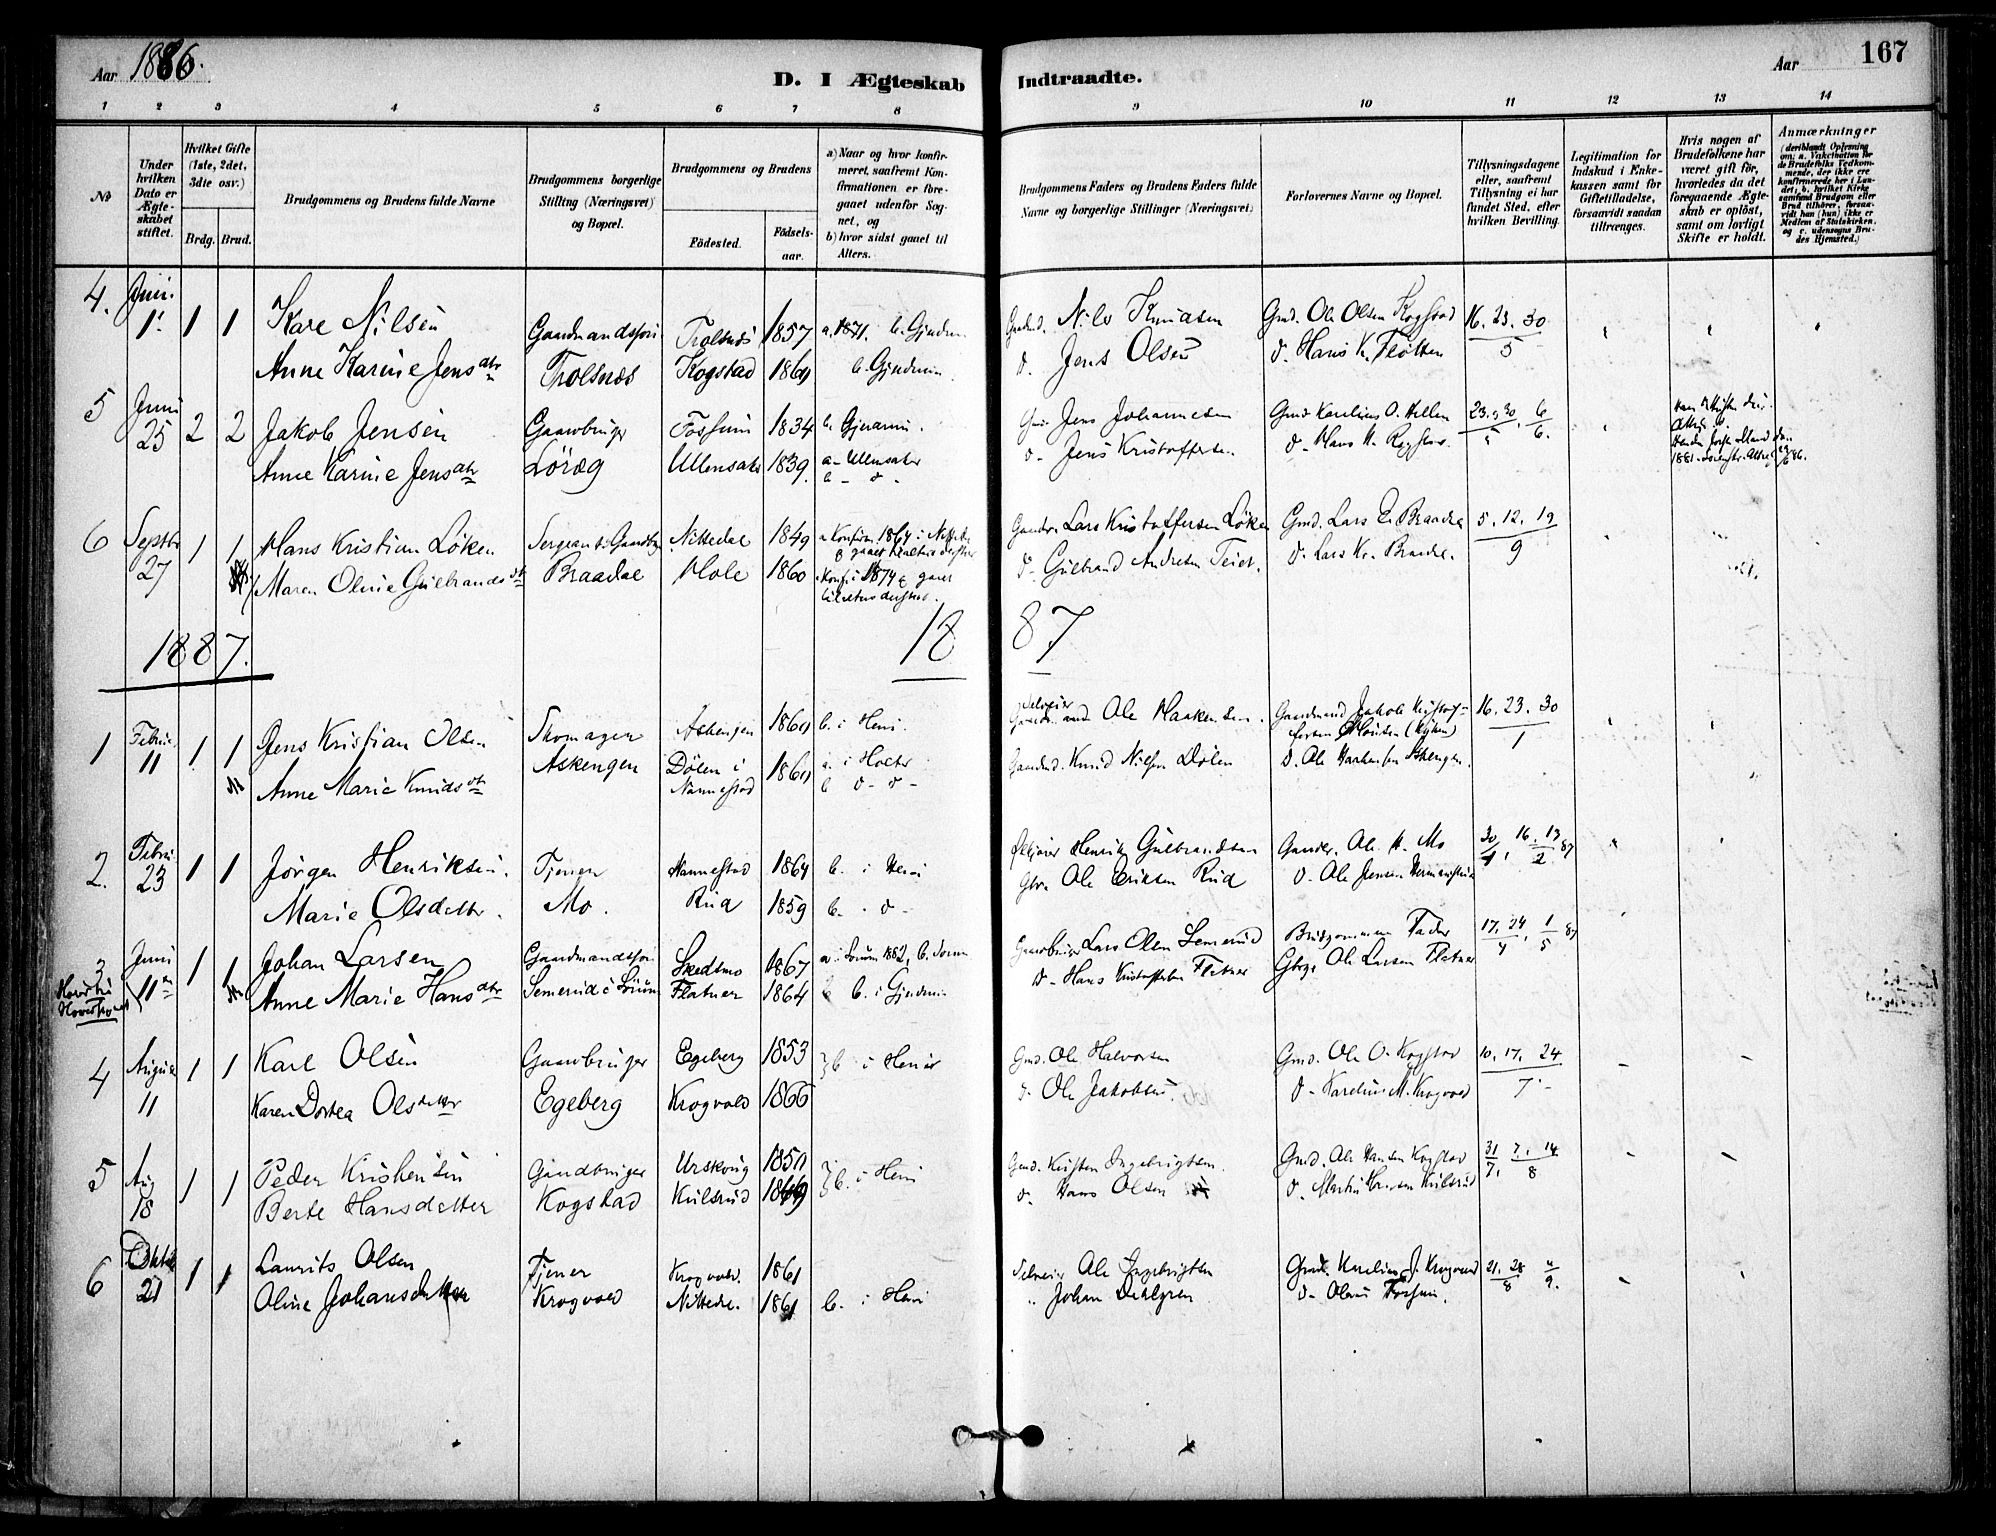 Aar 1886.
D. I Ægteskab Indtraadte.
Aar 167
1 2 3 4 5 6 7 8 9 10 11 12 13 14
No
Under hvilken Dato er Ægteskabet stiftet.
Hvilket Gifte (1ste, 2det, 3die osv.)
Brdg. Brud.
Brudgommens og Brudens fulde Navne
Brudgommens borgerlige Stilling (Næringsvei) og Bopæl.
Brudgommens og Brudens
Födested. Födselsaar.
a) Naar og hvor konfirmeret, saafremt Konfirmationen er foregaaet udenfor Sognet, og
b) hvor sidst gaaet til Alters.
Brudgommens Faders og Brudens Faders fulde Navne og borgerlige Stillinger (Næringsvei)
Forlovernes Navne og Bopæl.
Tillysningsdagene eller, saafremt Tillysning ei har fundet Sted, efter hvilken Bevilling.
Legitimation for Indskud i Enkekassen samt for Giftetilladelse, forsaavidt saadan tiltrænges.
Hvis nogen af Brudefolkene har været gift før, hvorledes da det foregaaende Ægteskab er opløst, samt om lovligt Skifte er holdt.
Anmærkninger (deriblandt Oplysning om: a. Vakcination for de Brudefolks Vedkommende, der ikke ere konfirmerede her i Landet; b. hvilket Kirkesamfund Brudgom eller Brud tilhörer, forsaavidt han (hun) ikke er Medlem af Statskirken, og c. udensogns Brudes Hjemsted.)
4. Juni 1. 1 1 Kare Nilsen Gaardmandssøn Trolsnes 1857 a. 1871. b. Gjerdrum Nils Knudsen Gmd. Ole Olsen Kogstad 16. 23. 30
Anne Karine Jensdtr Trolsnes Kogstad 1860 b. Gjerdrum d. Jens Olsen d. Hans K. Fløtten 5
5 Juni 25 2 2 Jakob Jensen Gaardbruger Fossum 1834 b. Gjerdrum. Jens Johannesen Gmd. Karelius O. Hellen 23. 30 6
Anne Karine Jensdtr Löräg Ullensaker 1839. a- Ullensaker d- Jens Kristoffersen d- Hans 5 6.
b- d-
6 Septbr 27 1 1 Hans Kristian Löken Sergeant & Gaardbr Nittedal 1849 a Konfirm. 1864 i Nittedal Gaardbr. Lars Kristoffersen Löken Gmd. Lars E. Braadal 5. 12. 19
& gaaet til alters dersteds
Maren Oline Gulbrandsdtr Braadal Hole 1860 Konf. i 1874 & gaaet d- Gulbrand Andersen Teien. d. Lars Kr. Braadal. 9
til alters dersteds.
1887. 1887
1 Februar 11 1 1 Jens Kristian Olsen Skomager Askengen 1860 b. i Heni. Ole Haakensen. Gaardmand Jakob Kristof- 16. 23. 30
fersen
Anne Marie Knudsdtr Askengen Dölen i Nannestad 1860 a. i Holter Gaardmd. Knud Nilsen Dölen d. Ole Haakensen Askengen. 1
b d- d-
2. Febru. 23 1 1 Jörgen Henriksen. Tjener Nannestad 1864 b. i Heni Henrik Gulbrandsen Gaardbr. Ole H. Mo 30 16. 13 87
Marie Olsdatter. Mo. Rud 1859 b. - d- Gbr. Ole Eriksen Rud d- Ole Jensen 1. 2
3 Juni 11 1 1 Johan Larsen Gaardmandssøn Skedsmo 1867 a i Sørum 1882, b. Sørum Gaardbruger Lars Olsen Semerud Brudgommens Fader 17. 24 1 87
Anne Marie Hansdtr Semerud i Sörum Flatner 1864 b. i Gjerdrum d- Hans Kristoffersen Flatner Gbrg. Ole Larsen Flatner 4 5
4 August 11 1 1 Karl Olsen Gaardbruger Egeberg 1853 b. i Heni Gmd. Ole Halvorsen Gmd. Ole O. Kogstad 10. 17. 24
Karen Dortea Olsdatter Egeberg Krogvold 1866 d- Ole Jakobsen d- Karelius M. Krogvold 7.
5 Aug 18 1 1 Peder Kristensen Gaardbruger Urskoug 1850 b. i Heni Gmd. Kristen Ingebrigtsen. Gmd. Ole Hansen Kogstad 31 7. 14
Berte Hansdatter Kogstad Kulsrud 1869 d- Hans Olsen d. Martin Hansen Kulsrud 7. 8
6 Oktbr 21 1 1 Laurits Olsen Tjener Krogvold. 1861 Ole Ingebrigtsen Gmd. Karelius J. Krogvold 21. 28 4
Oline Johansdatter Krogvold Nittedal. 1861 b. i Heni " Johan Dahlgren d- Olaus Fossum. 8 9.